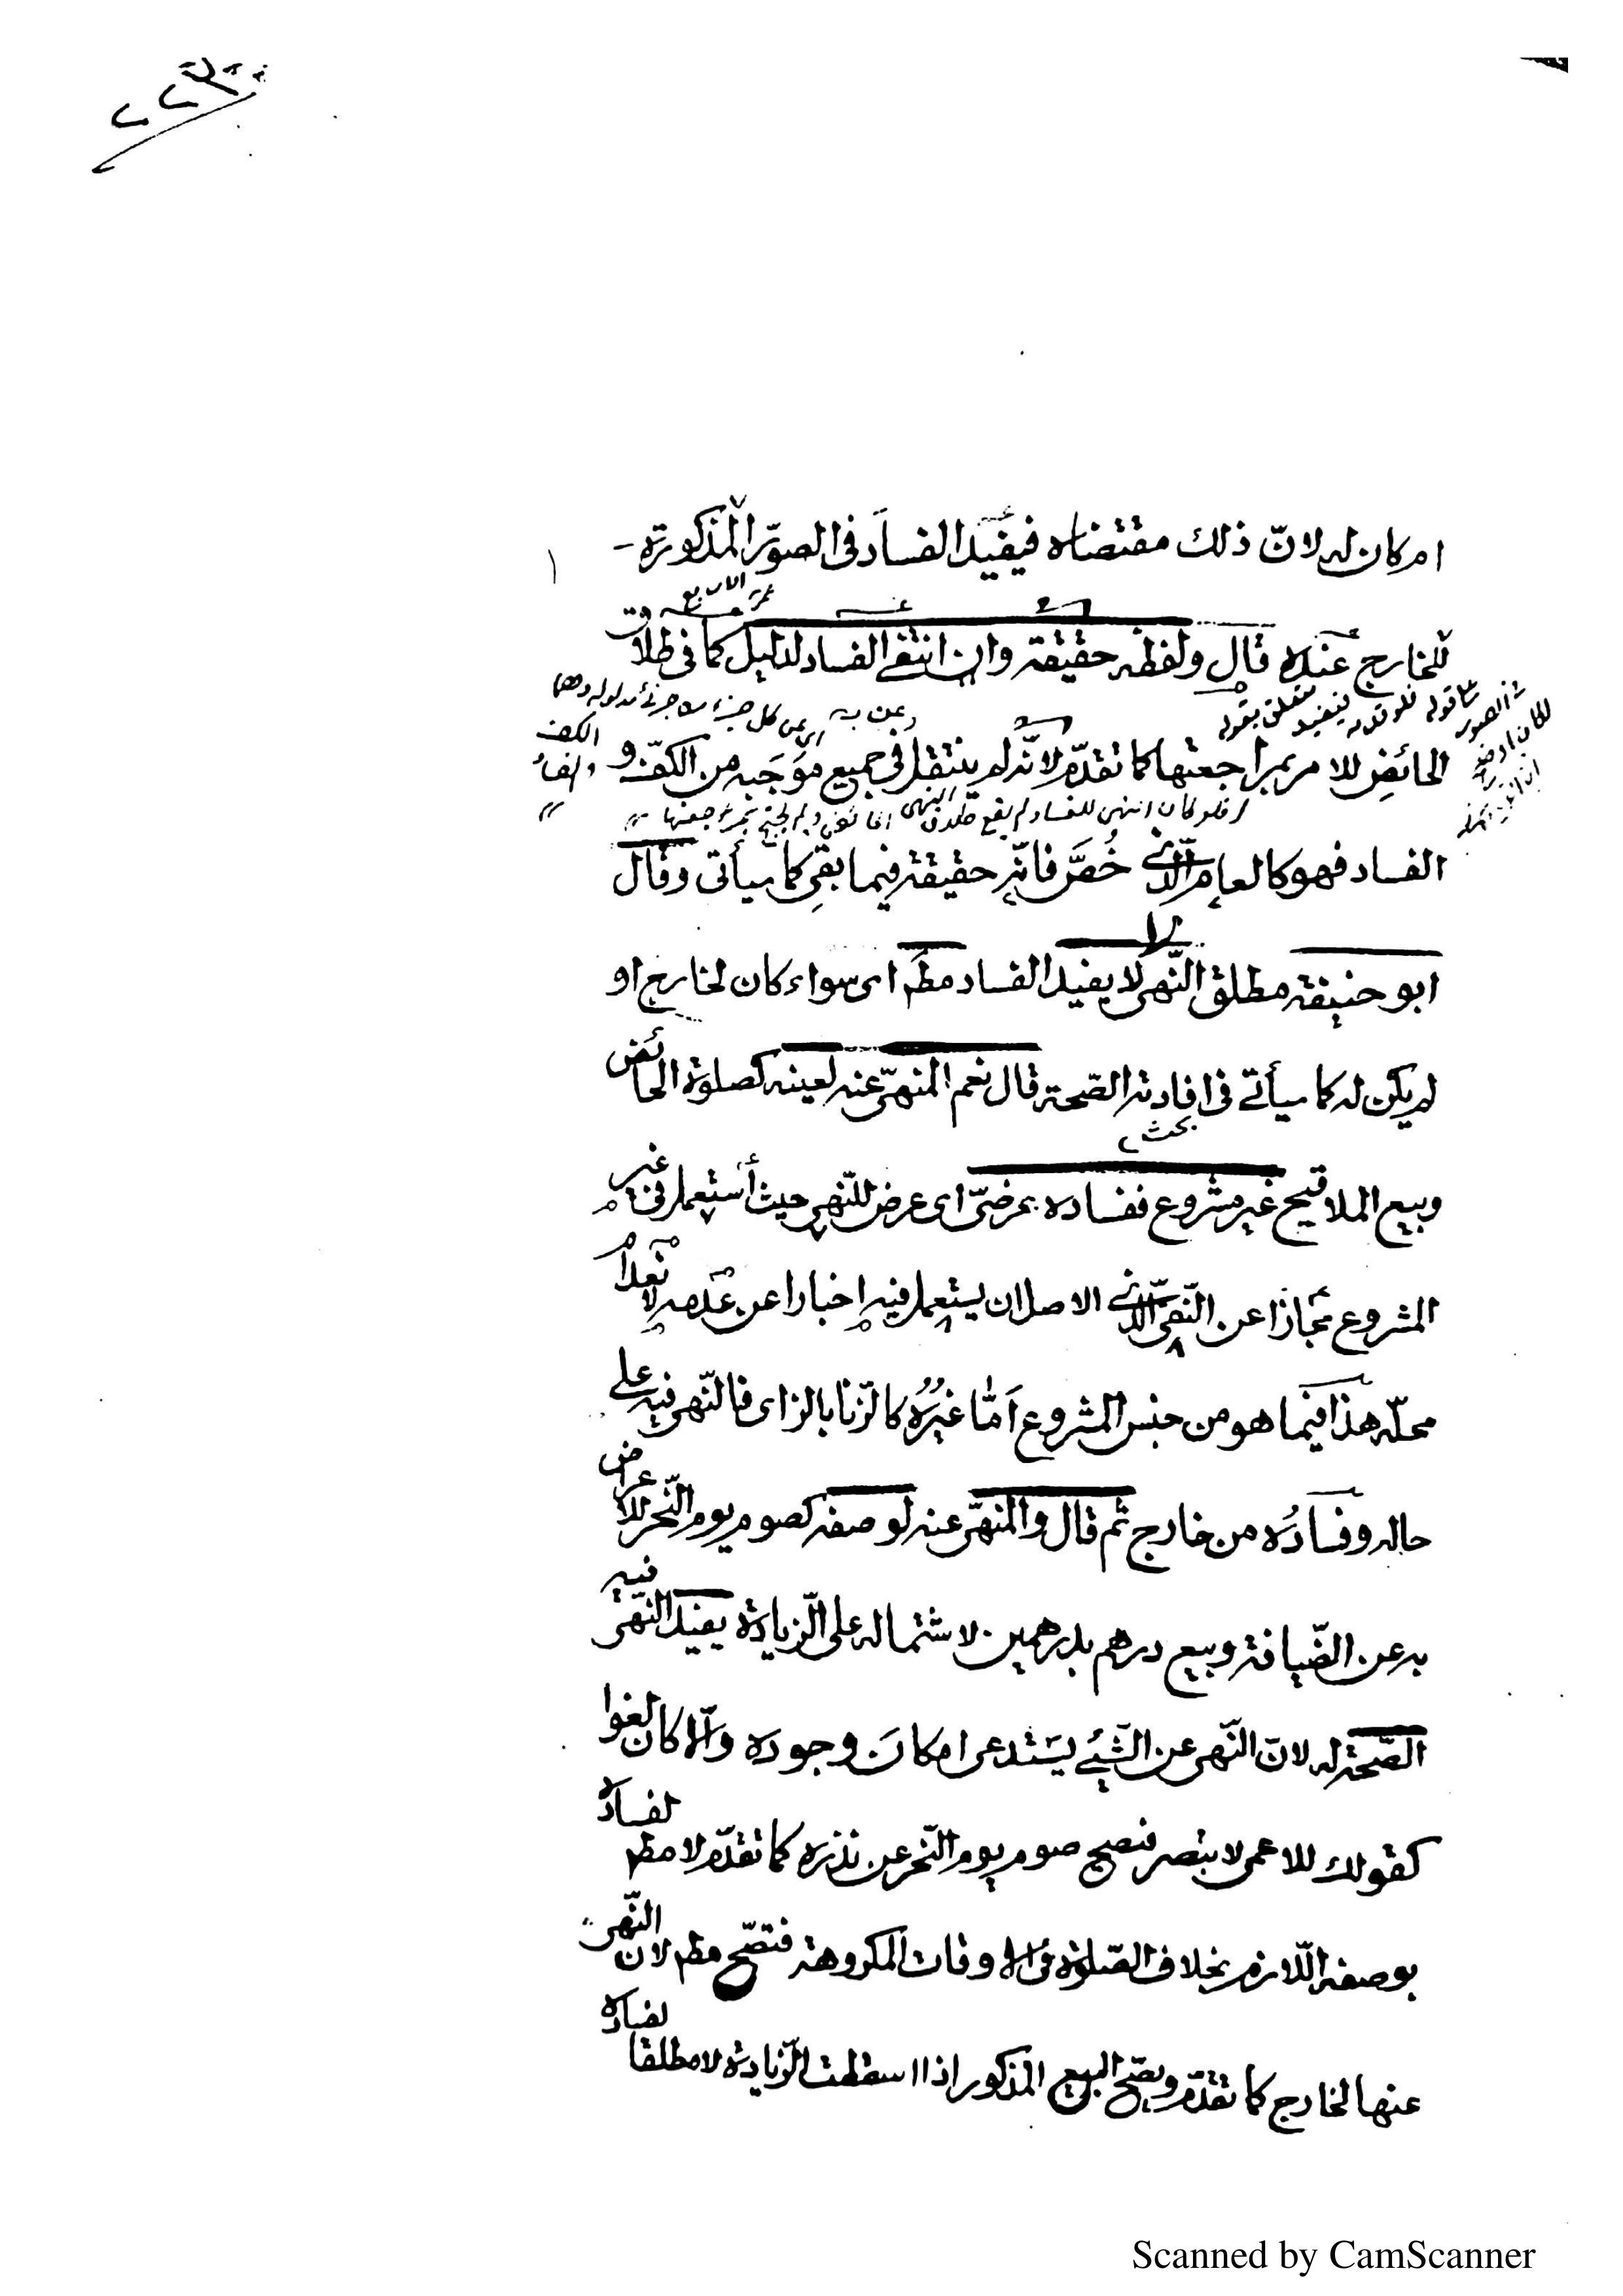 امكان له لانّ ذلك مقتضاه فيفيد الفساد فى الصوّر المذكورة -
للخارج عنده قال ولفظه حقيقة وان انتفى الفساد لدليل كما فى طلاق
الحائض للامر بمراجعتها كما تقدّم لانّه لم ينتقل فى جميع موجَبه من الكفّ و
الفساد فهو كالعام الّذى خُصَّ فانّه حقيقة فيما بقى كما سيأتى وقال
ابو حنيفة مطلق النّهى لا يفيد الفساد مطم اى سواء كان لخارج او
لم يكن له كما سيأتى فى افادته الصّحة قال نعم المنهىّ عنه لعينه كصلوة الحائض
وبيع الملاقيح غير مشروع ففساده عرضىّ اى عرض للنّهى حيث أستعمل فى غير
المشروع مجازا عن النّفى الّذى الاصل ان يستعمل فيه إخبارا عن عدمه لانعدام
محلّه هذا فيما هو من جنس المشروع اَمّا غيرُه كالزّنا بالزاى فالنّهى فيه على
حاله وفسادُه من خارج ثم قال والمنهىّ عنه لوصفه كصوم يوم النّحر للاعراض
به عن الضّيافة وبيع درهم بدرهمين لاشتماله على الزّيادة يفيد النّهى فيه
الصّحة له لانّ النّهى عن الشّيئ يستدعى امكان وجوده والّا كان لغوا
كقولك للاعمى لا تبصر فيصح صوم يوم النّحر عن نذره كما تقدّم لا مطم لفساده
بوصفه اللّازم بخلاف الصّلوة فى الاوقات المكروهة فتصّح مطم لان النّهى
عنها لخارج كما تقدّم ويصّح البيع المذكور اذا اسقطت الزّيادة لا مطلقا لفساده
Scanned by CamScanner